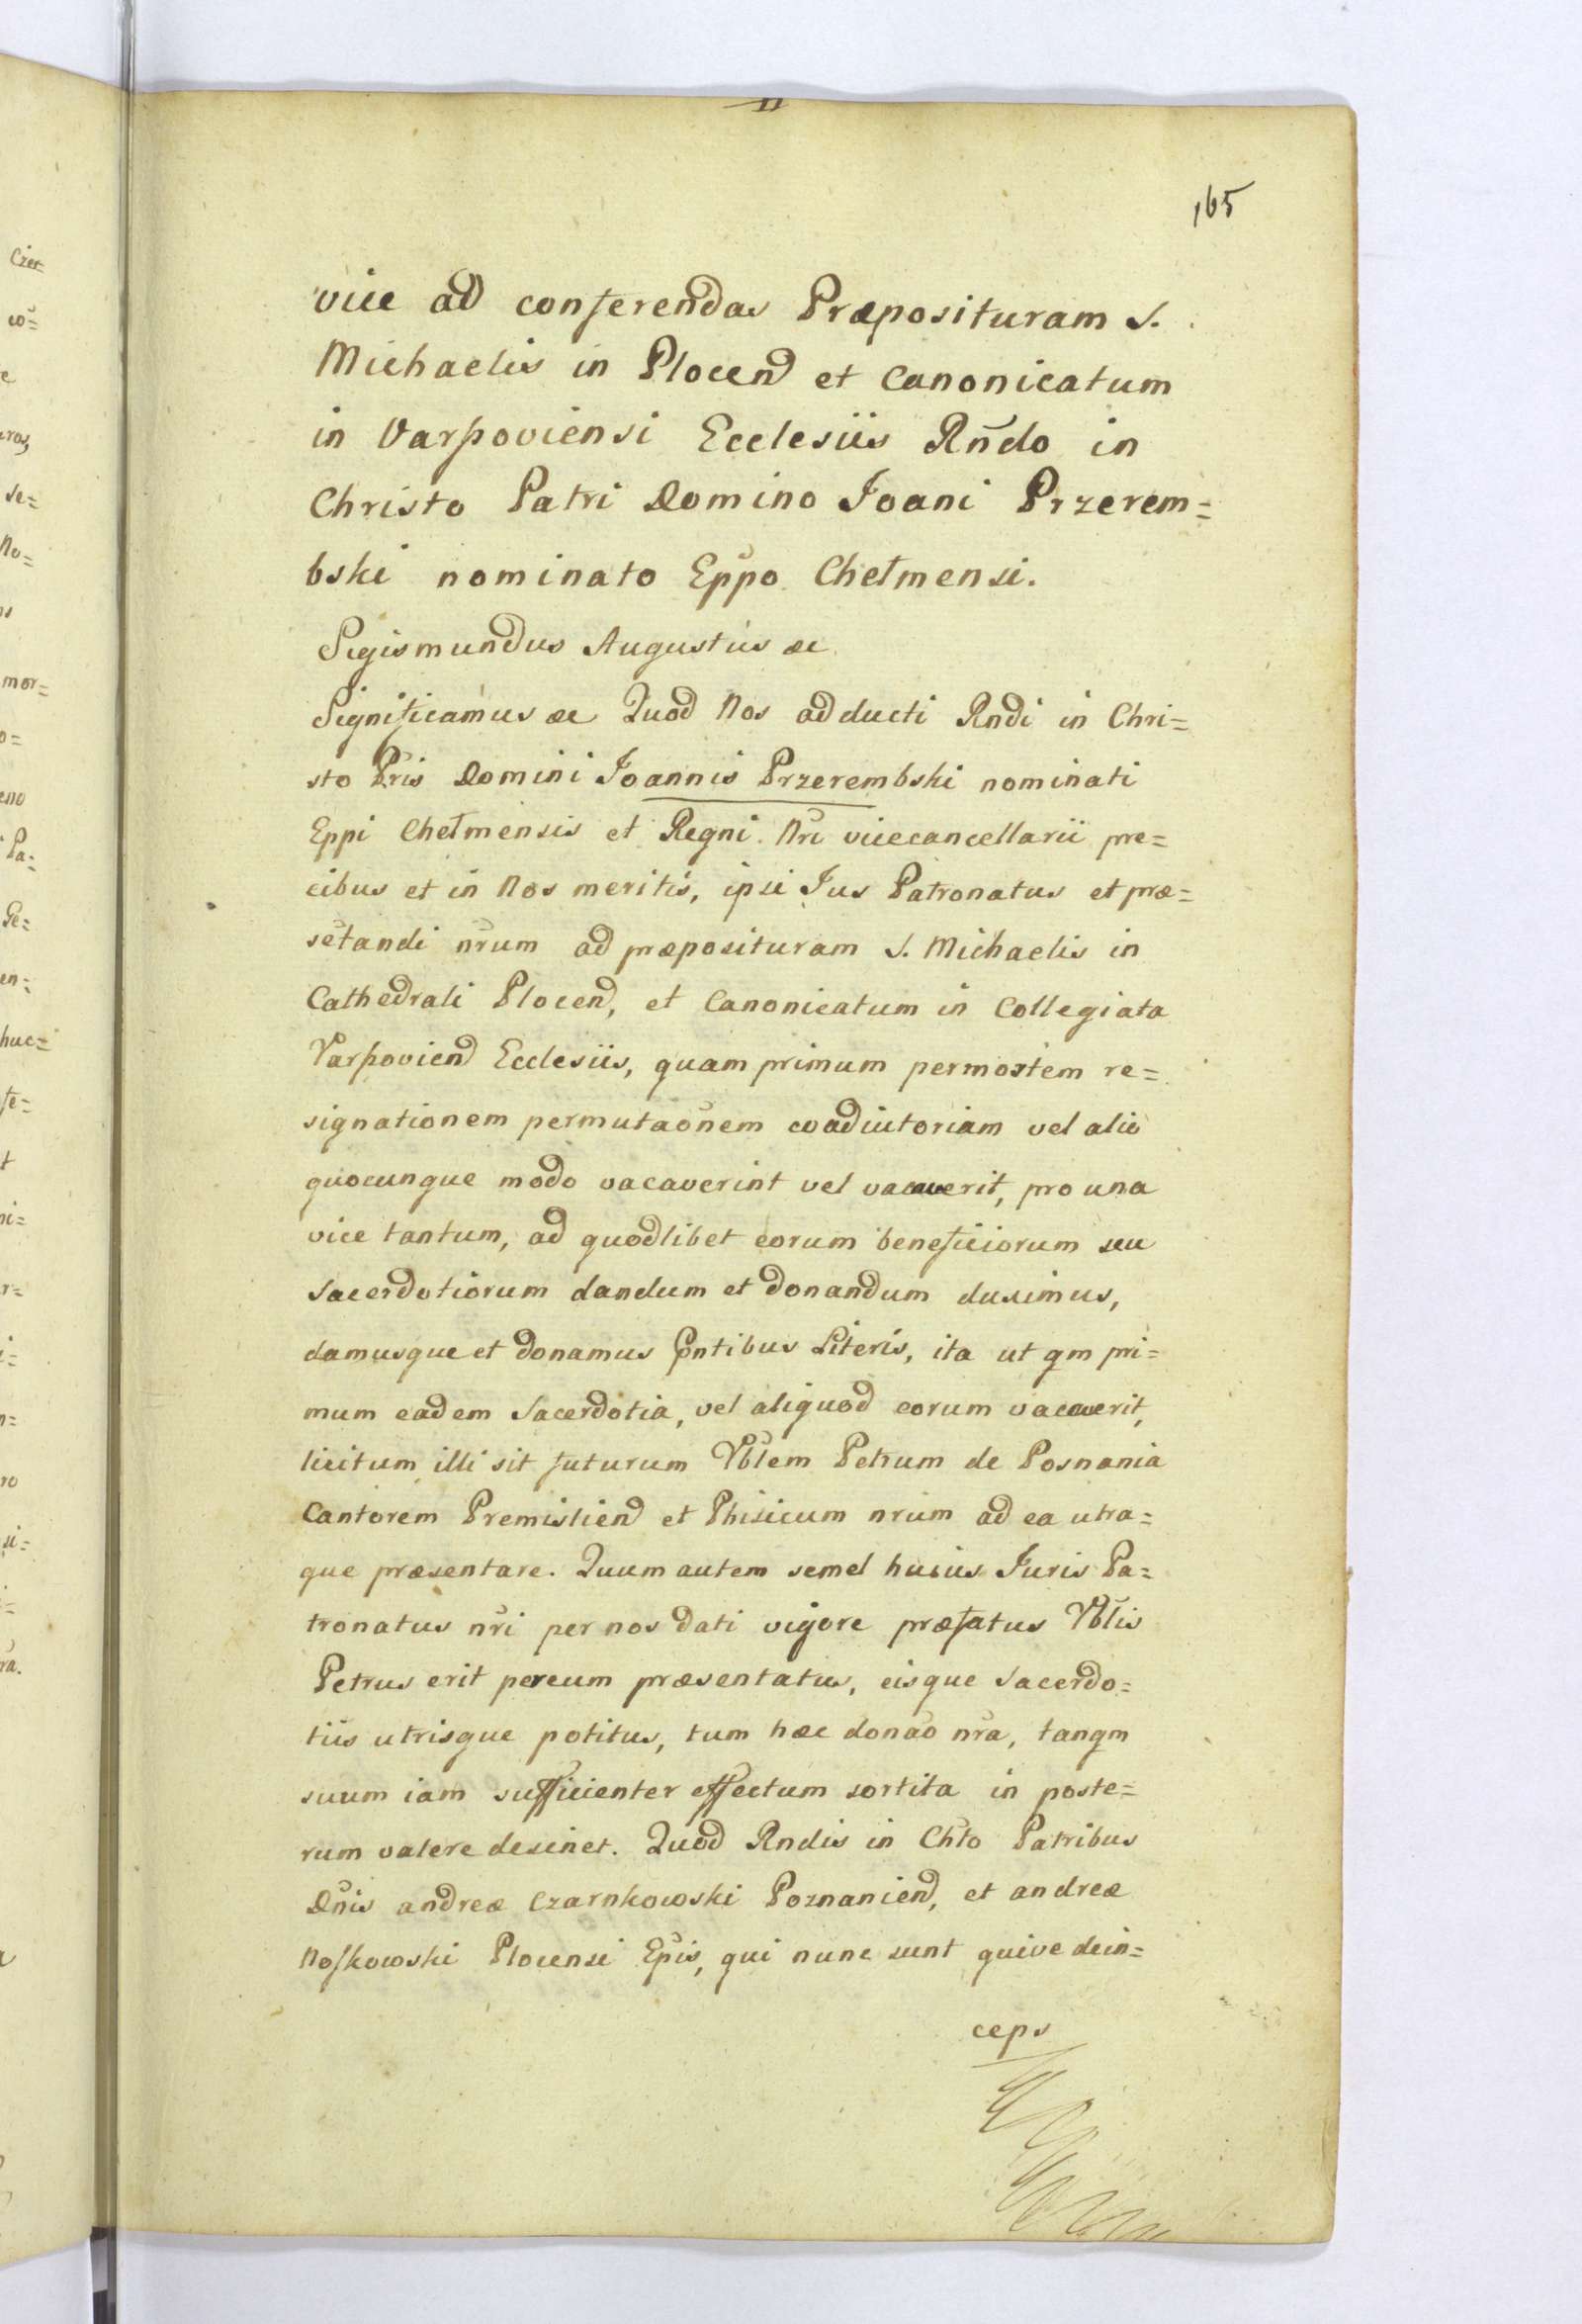 165
vice ad conferendas Præposituram S.
Michaelis in Plocen̄ et Canonicatum
in Varszoviensi Ecclesiis Rñdo in
Christo Patri Domino Joani Przerem=
bski nominato Eppo Chełmensi.
Sigismundus Augustus æc
Significamus æc Quod Nos adducti Rndi in Chri=
sto Pris Domini Joannis Przerembski nominati
Eppi Chełmensis et Regni Nri vicecancellarii pre=
cibus et in Nos meritis, ipsi Jus Patronatus et præ=
sētandi nrum ad præposituram S. Michaelis in
Cathedrali Plocen̄, et Canonicatum in Collegiata
Varszovien̄ Ecclesiis, quam primum per mortem re=
signationem permutaōnem coadiutoriam vel alio
quocunque modo vacaverint vel vacaverit, pro una
vice tantum, ad quodlibet eorum beneficiorum seu
Sacerdotiorum dandum et donandum duximus,
damusque et donamus pntibus Literis, ita ut qm pri=
mum eadem Sacerdotia, vel aliquod eorum vacaverit,
licitum illi sit futurum Vblem Petrum de Posnania
Cantorem Premislien̄ et Phisicum nrum ad ea utra=
que præsentare. Quum autem semel huius Juris Pa=
tronatus nri per nos dati vigore præfatus Vblis
Petrus erit per eum præsentatus, eisque Sacerdo=
tiis utrisque potitus, tum hæc donao nra, tanqm
suum iam sufficienter effectum sortita in poste=
rum valere desinet. Quod Rndis in Chto Patribus
Dnis andreæ Czarnkowski Poznanien̄, et andreæ
Noskowski Plocensi Epis, qui nunc sunt quive dein=
ceps